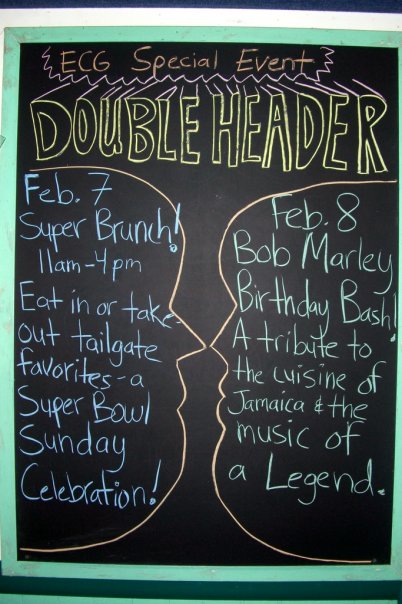 ECG Special Event
DOUBLE HEADER
Feb. 7
Super Brunch!
11am-4pm
Eat in or take
out tailgate
favorites-a
Super Bowl
Sunday
Celebration!
Feb. 8
Bob Marley
Birthday Bash!
A tribute to
the cuisine of
Jamaica & the
music of
a Legend.